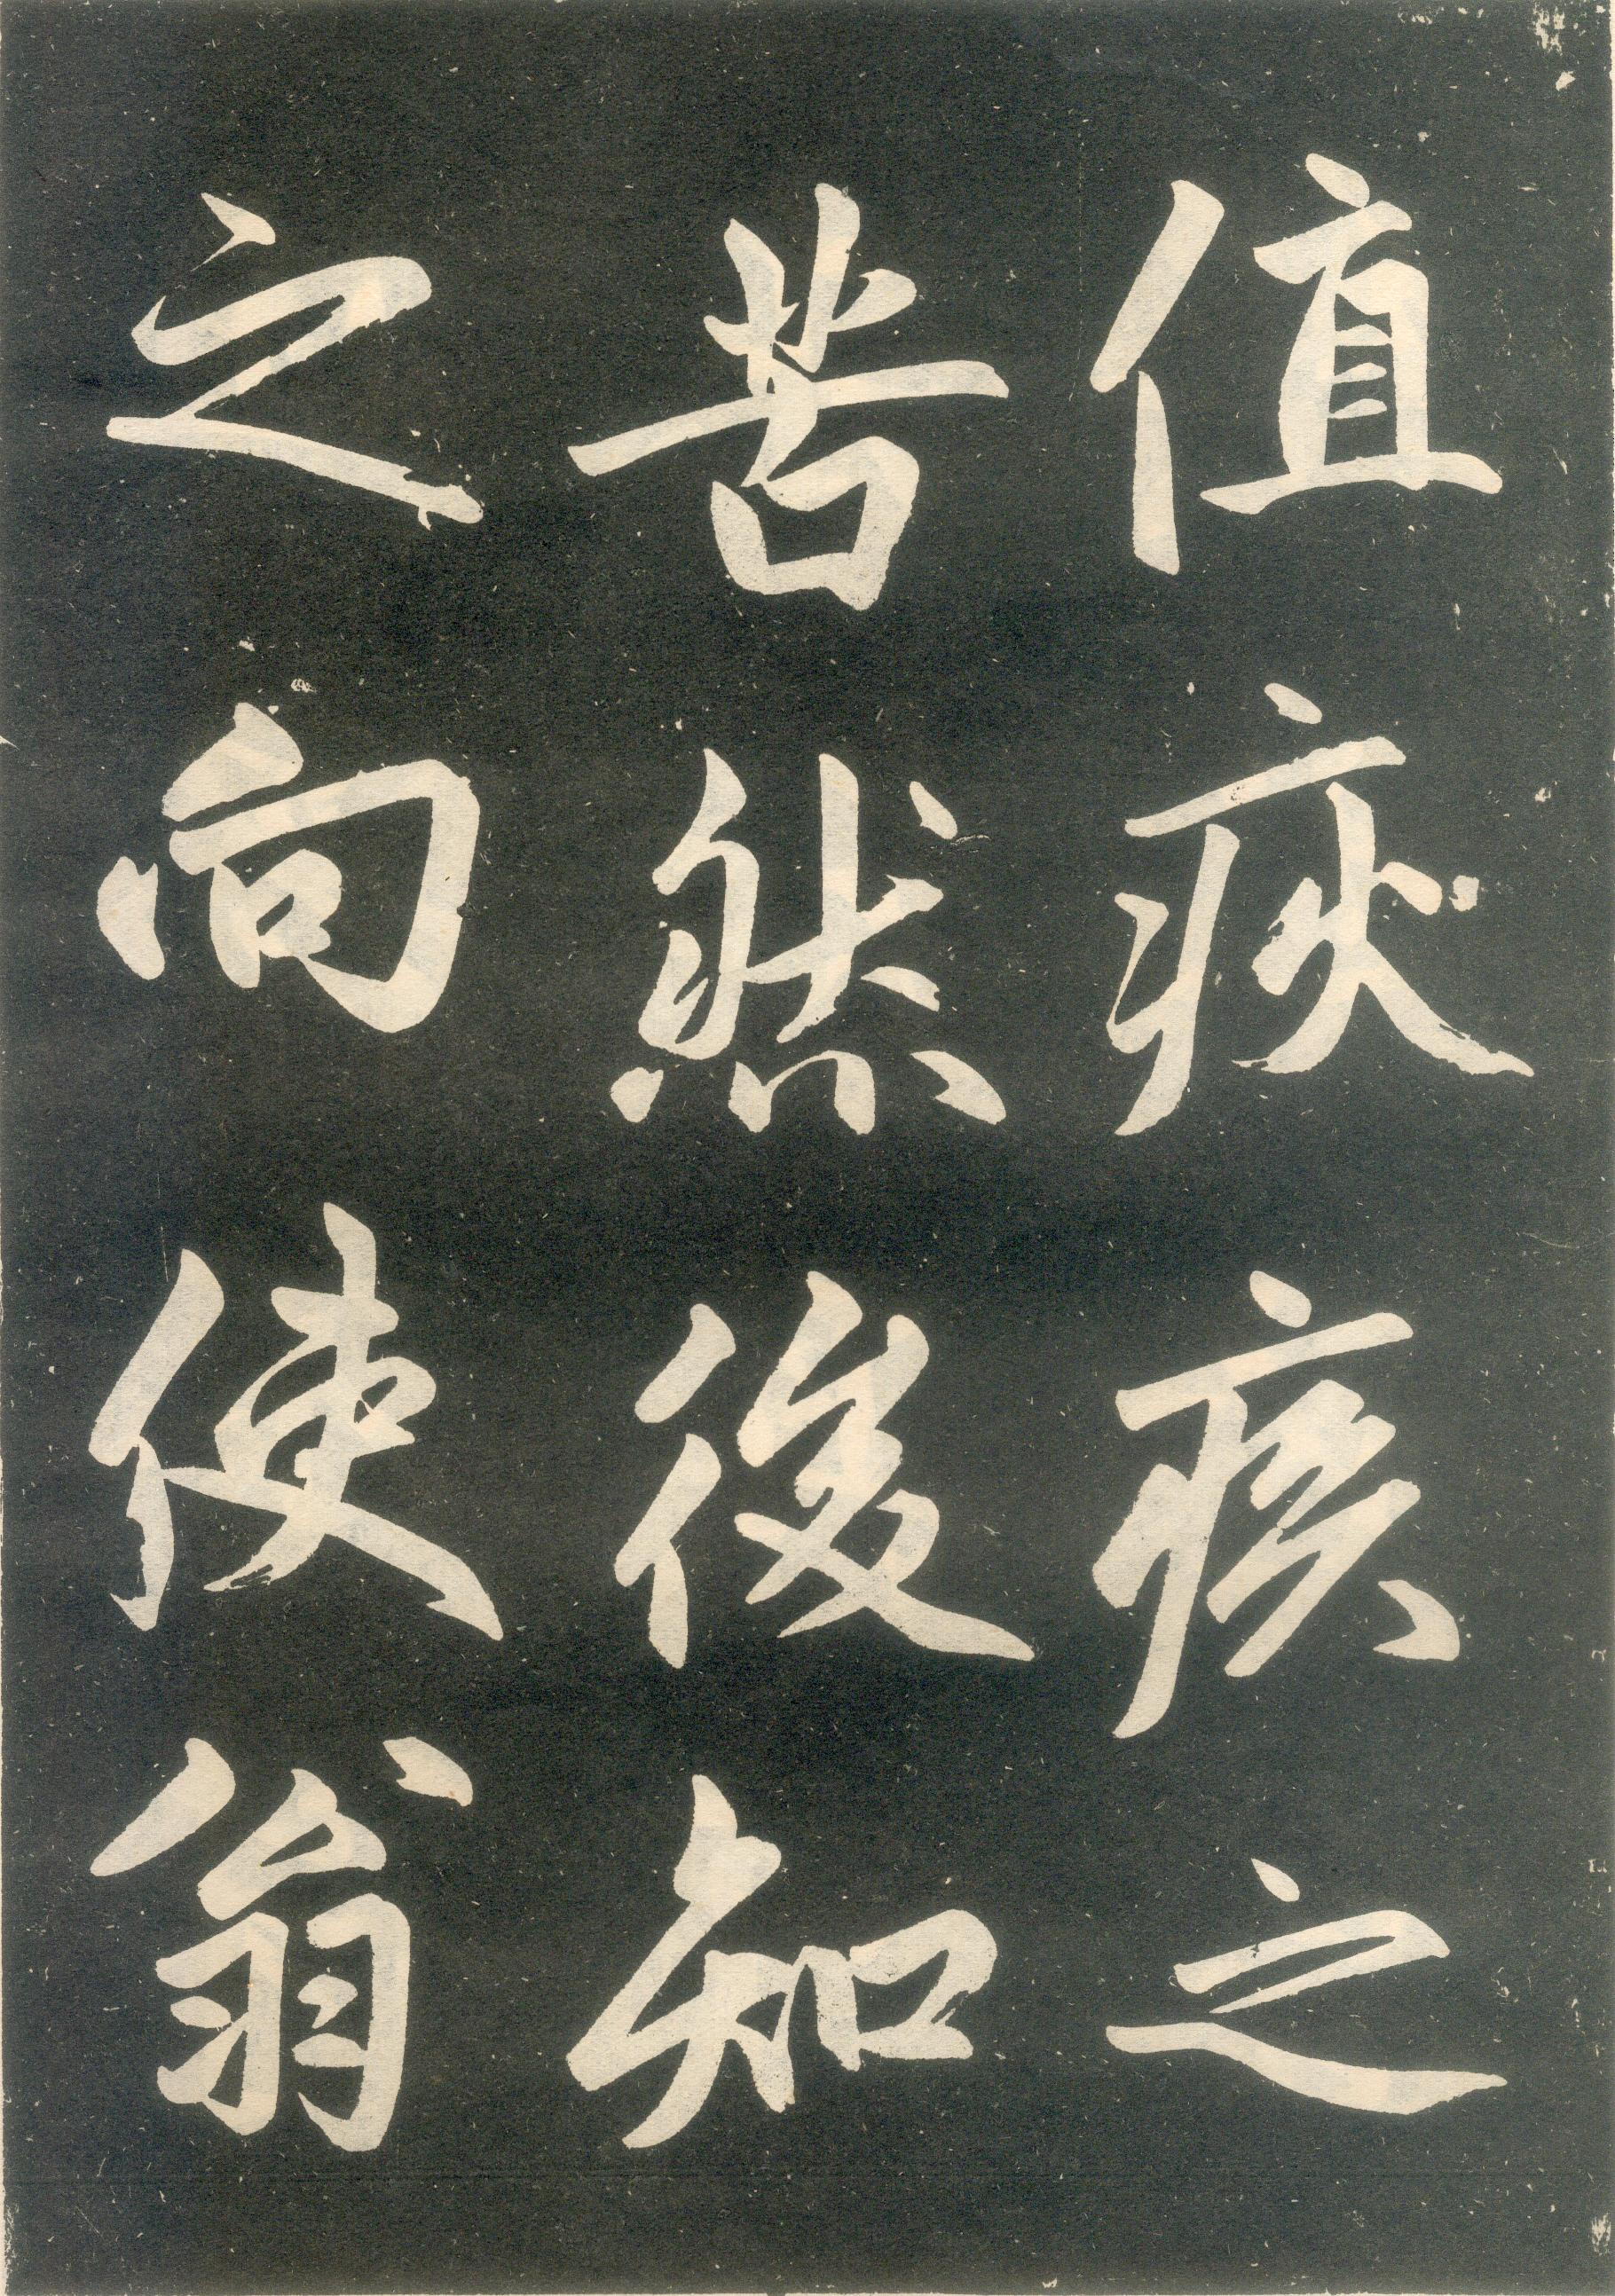 值疢痎之
苦然後知
之向使翁